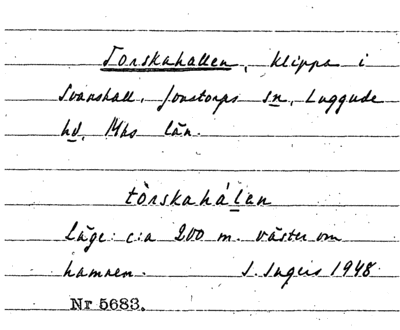 Torskahallen, klippa i
Svanshall, Jonstorps sn, Luggude
hd, Mhs län.
tòrskahálan
Läge: c:a 200 m. väster om
hamnen. S. Ingers 1948
Nr 5683.